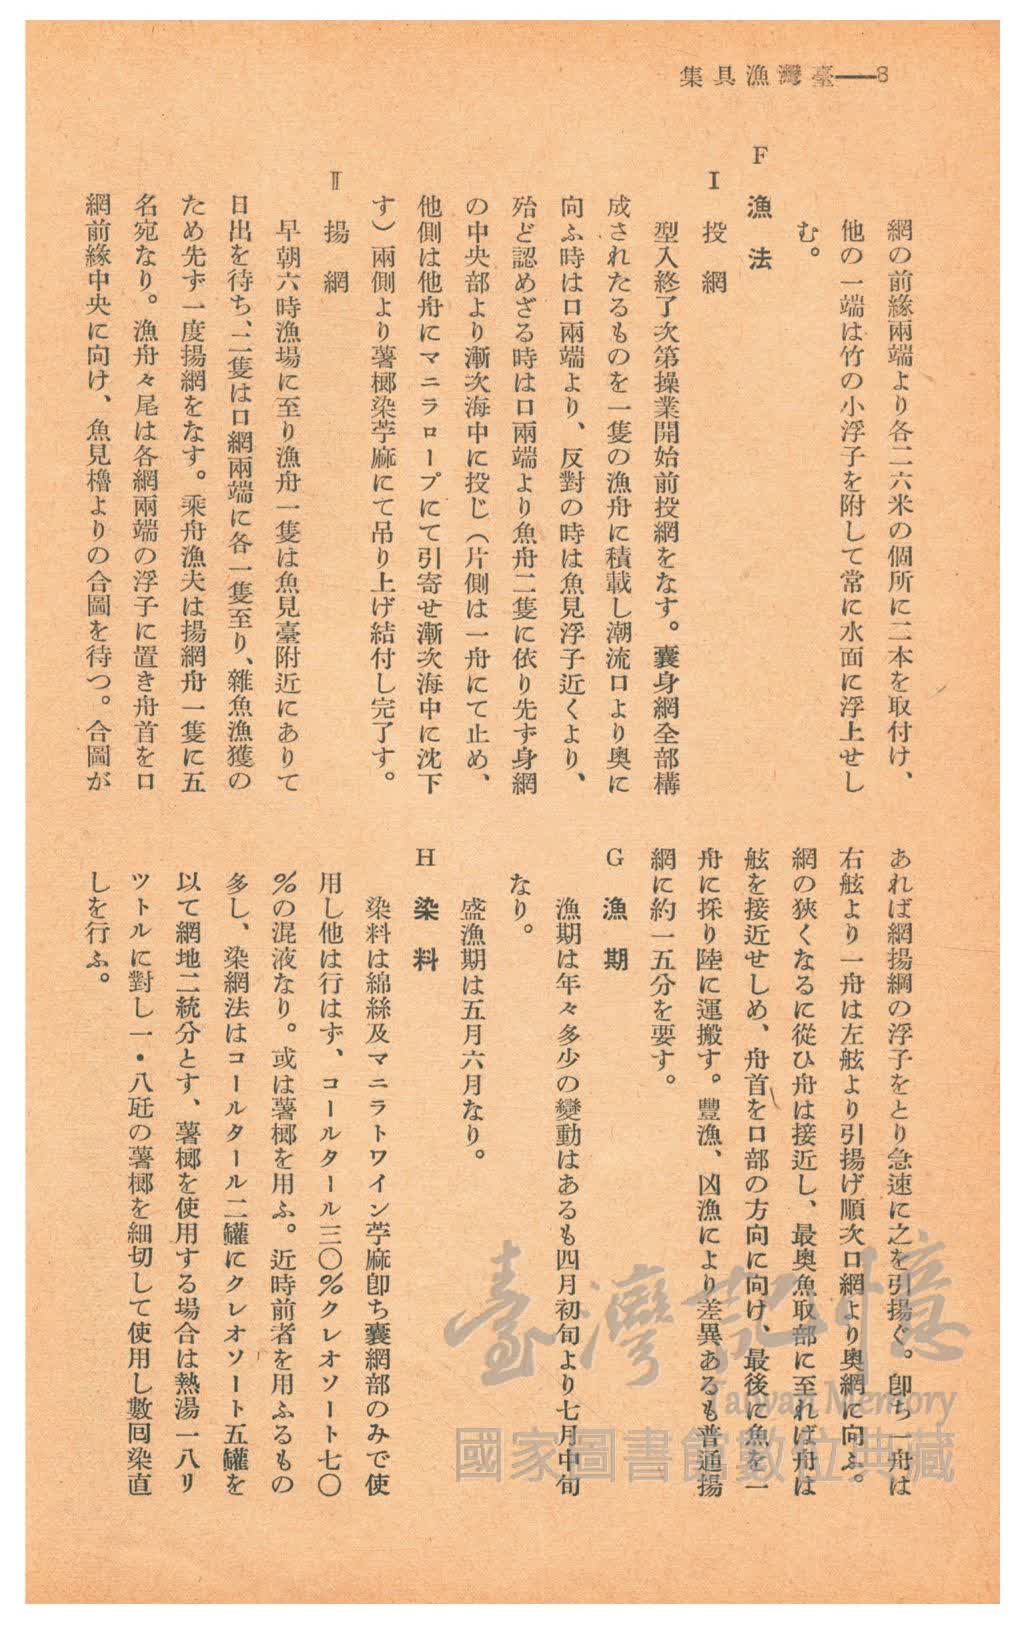 集具漁灣臺——8
網の前緣兩端より各二六米の個所に二本を取付け、
他の一端は竹の小浮子を附して常に水面に浮上せし
む。
F 漁法
I 投網
型入終了次第操業開始前投網をなす。囊身網全部構
成されたるものを一隻の漁舟に積載し潮流口より奧に
向ふ時は口兩端より、反對の時は魚見浮子近くより、
殆ど認めざる時は口兩端より魚舟二隻に依り先ず身網
の中央部より漸次海中に投じ（片側は一舟にて止め、
他側は他舟にマニラロープにて引寄せ漸次海中に沈下
す）兩側より薯榔染苧麻にて吊り上げ結付し完了す。
Ⅱ 揚網
早朝六時漁場に至り漁舟一隻は魚見臺附近にありて
日出を待ち、二隻は口網兩端に各一隻至り、雜魚漁獲の
ため先ず一度揚網をなす。乘舟漁夫は揚網舟一隻に五
名宛なり。漁舟々尾は各網兩端の浮子に置き舟首を口
網前緣中央に向け、魚見櫓よりの合圖を待つ。合圖が
あれば網揚綱の浮子をとり急速に之を引揚ぐ。卽ち一舟は
右舷より一舟は左舷より引揚げ順次口網より奧網に向ふ。
網の狹くなるに從ひ舟は接近し、最奧魚取部に至れば舟は
舷を接近せしめ、舟首を口部の方向に向け、最後に魚を一
舟に採り陸に運搬す。豐漁、凶漁により差異あるも普通揚
網に約一五分を要す。
G 漁期
漁期は年々多少の變動はあるも四月初旬より七月中旬
なり。
盛漁期は五月六月なり。
H 染料
染料は綿絲及マニラトワイン苧麻卽ち囊網部のみで使
用し他は行はず、コールタール三〇%クレオソート七〇
%の混液なり。或は薯榔を用ふ。近時前者を用ふるもの
多し、染網法はコールタール二罐にクレオソート五罐を
以て網地二統分とす、薯榔を使用する場合は熱湯一八リ
ツトルに對し一・八瓩の薯榔を細切して使用し數囘染直
しを行ふ。
臺灣記憶
Taiwan Memory
國家圖書館數位典藏